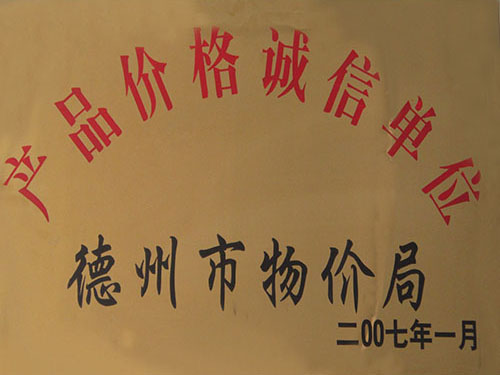 产品价格诚信单位
德州市物价局
二00七年一月